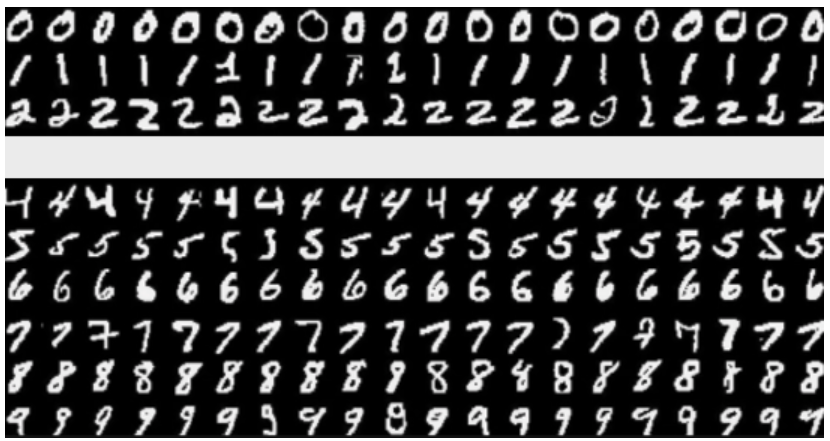 0 0 0 0 0 0 0 0 0 0 0 0 0 0 0 0 0 0 0 0
1 1 1 1 1 1 1 1 1 1 1 1 1 1 1 1 1 1 1 1
2 2 2 2 2 2 2 2 2 2 2 2 2 2 2 2 2 2 2 2
4 4 4 4 4 4 4 4 4 4 4 4 4 4 4 4 4 4 4 4
5 5 5 5 5 5 5 5 5 5 5 5 5 5 5 5 5 5 5 5
6 6 6 6 6 6 6 6 6 6 6 6 6 6 6 6 6 6 6 6
7 7 7 7 7 7 7 7 7 7 7 7 7 7 7 7 7 7 7 7
8 8 8 8 8 8 8 8 8 8 8 8 8 8 8 8 8 8 8 8
9 9 9 9 9 9 9 9 9 9 9 9 9 9 9 9 9 9 9 9